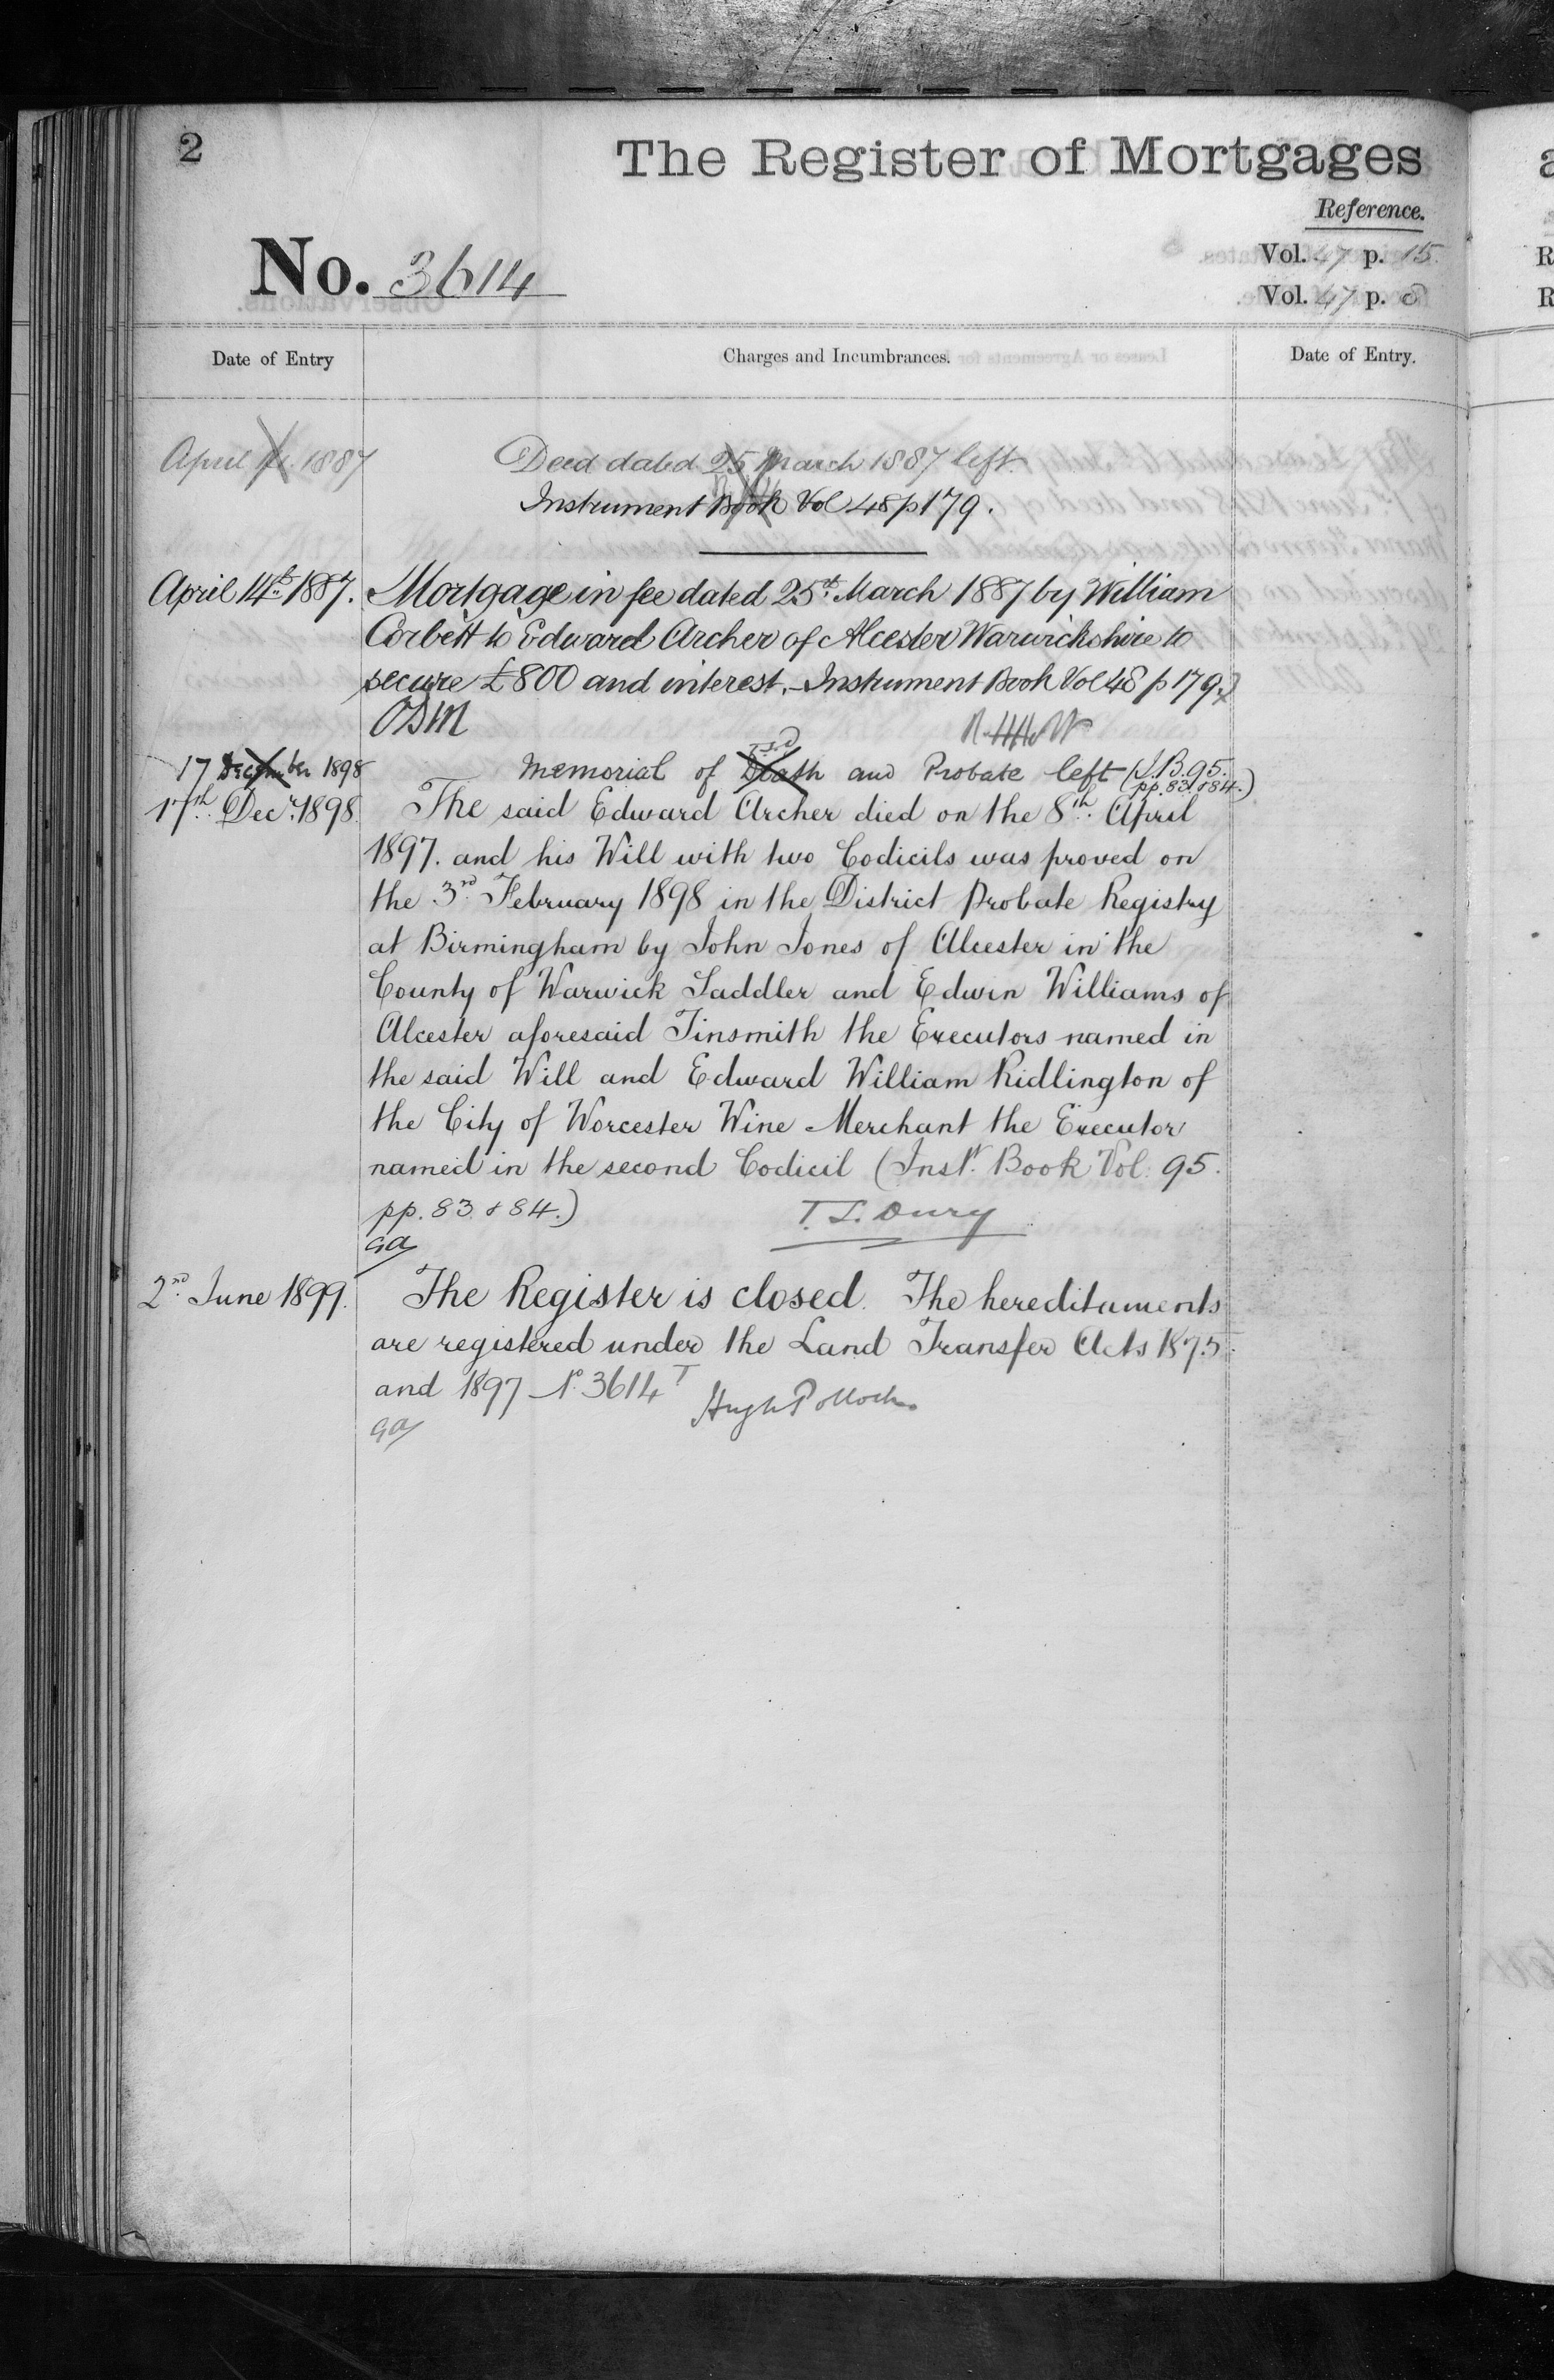 2
The Register of Mortgages
Reference.
No. 3614
Vol. 47 p. 15
Vol. 47 p.
Date of Entry
Charges and Incumbrances.
Date of Entry.
April 1887
Deed dated 25 March 1887 left
Instrument Book Vol 48 p 179.
April 14th 1887.
Mortgage in fee dated 25th March 1887 by William
Corbett to Edward Archer of Alcester Warwickshire to
secure £800 and interest. – Instrument Book Vol 48 p 179.
17 December 1898
Memorial of Death and Probate left (I.B. 95.
pp. 83 & 84.)
17th Decr. 1898.
The said Edward Archer died on the 8th April
1897. and his Will with two Codicils was proved on
the 3rd February 1898 in the District Probate Registry
at Birmingham by John Jones of Alcester in the
County of Warwick Saddler and Edwin Williams of
Alcester aforesaid Tinsmith the Executors named in
the said Will and Edward William Ridlington of
the City of Worcester Wine Merchant the Executor
named in the second Codicil (Instt. Book Vol: 95.
pp. 83 & 84.)
T. S. Dury
GA
2nd June 1899.
The Register is closed. The hereditaments
are registered under the Land Transfer Acts 1875
and 1897 No. 3614 T
Hugh Pollock
GA